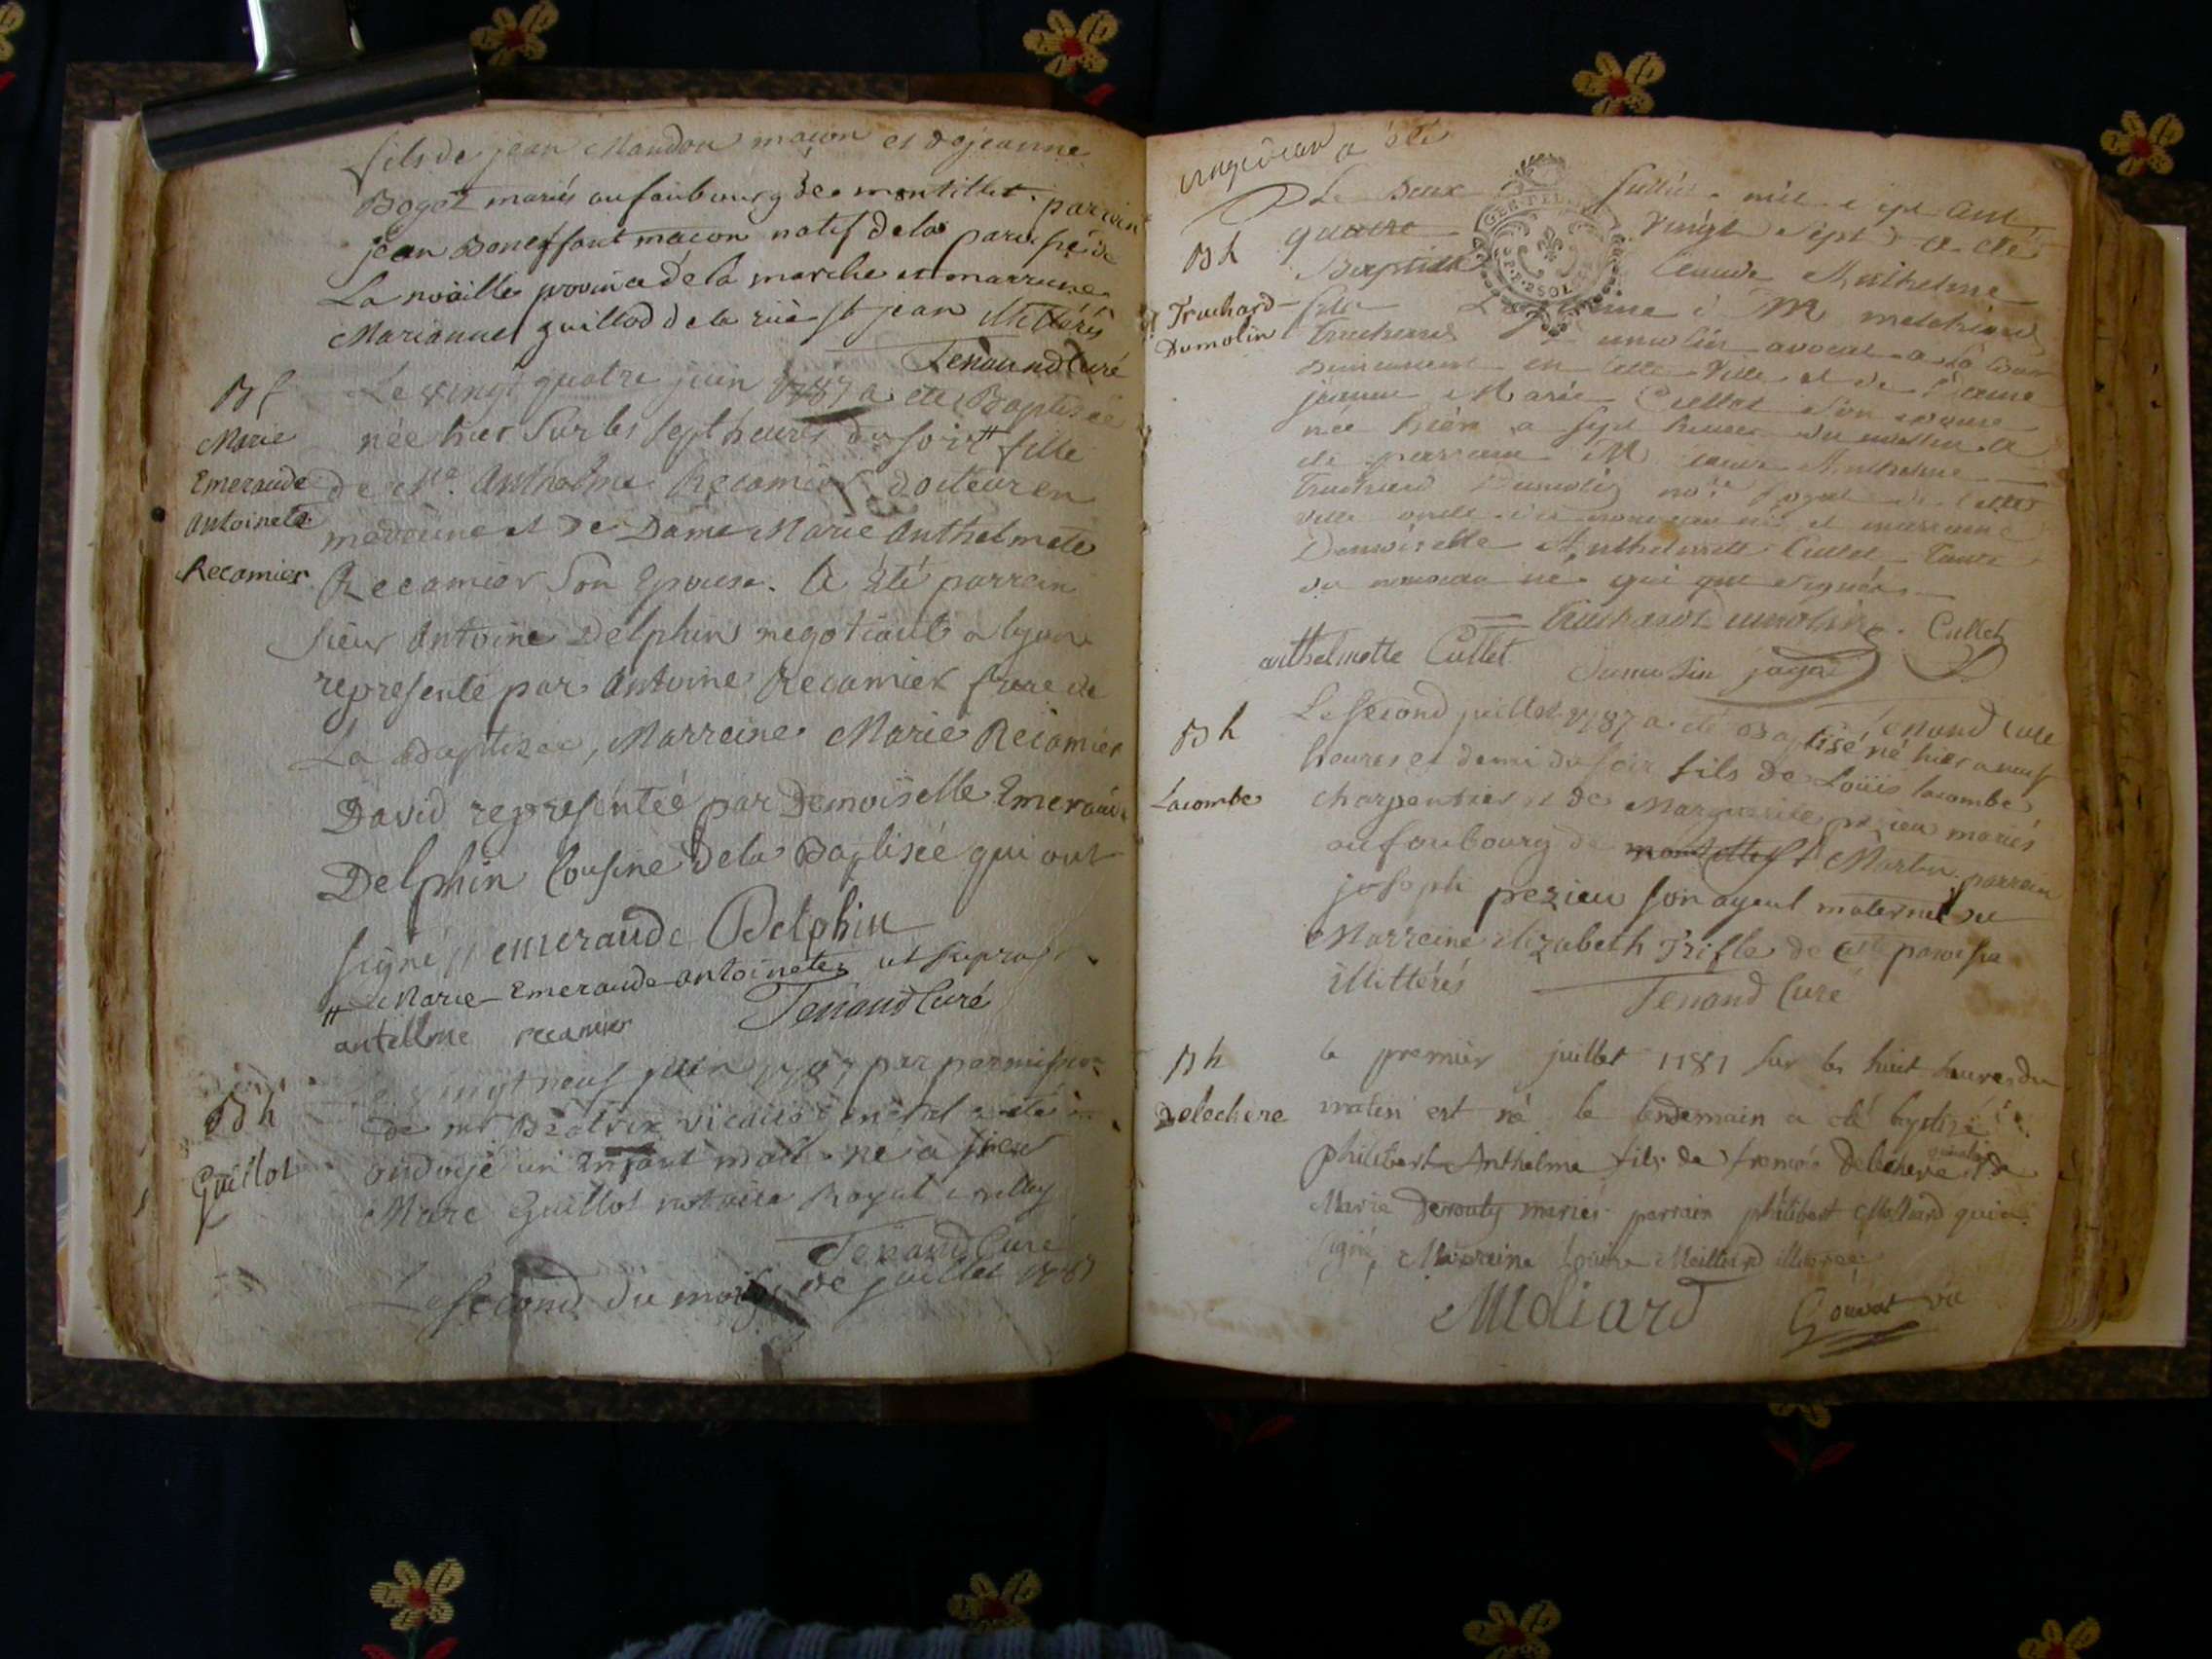 fils de jean Maudon macon et de jeanne
Boget mariés au faubourg de montillet. parrain
jean Boneffant macon natif de la paroisse de
La noaille province de la marche et marraine
Marianne guillod de la rüe st jean illitérés
Tenand Curé
Bf
Marie
Emeraude
Antoinete
Recamier
Le vingt quatre juin 1787 a été Baptisée
née hier sur les sept heures du soir # fille
de Mre. Anthelme Recamier docteur en
medecine et de Dame Marie Anthelmete
Recamier son Epouse. A été parrain
sieur Antoine Delphin negotiant a lyon
representé par Antoine Recamier frere de
La Baptisée, Marreine Marie Recamier
David representée par Demoiselle Emeraude
Delphin Cousine de la Baptisée qui ont
signé // emeraude Delphin
# Marie Emeraude antoinete ut supra
antellme recamier Tenand Curé
Bh
Guillot
Le vingt neuf juin 1787 par permission
de mr vicaire general a été
ondoyé un Enfant male né a sieur
Marc Guillot notaire Royal
Tenand Curé
Le second du mois de juillet 1787
a été
Bh
Truchard
Dumolin
Le Deux juillet mil sept cent
quatre vingt sept a été
Baptisé Claude Anthelme
fils de M melchior
Truchard Dumolin avocat a la Cour
demeurant en cette Ville et de Dame
jeanne Marie Cullet son epouse
née hier a sept heures du matin a
été parrain M Anthelme
Truchard Dumolin Royal de cette
ville oncle du nouveau né et marraine
Demoiselle Anthelmette Cullet Tante
du nouveau né qui ont signés
Truchard Dumolin Cullet
anthelmette Cullet Dumolin
Tenand Curé
Bh
Lacombe
Le second juillet 1787 a été Baptisé né hier a neuf
heures et demi du soir fils de Loüis lacombe
charpentier et de Marguerite prezieu mariés
au faubourg de montillet st Martin parrain
joseph prezieu son ayeul maternel et
Marreine elizabeth Trifle de cette paroisse
illitterés Tenand Curé
Bh
Delechere
le premier juillet 1787 sur les huit heures du
matin est né le lendemain a été baptizé
philibert Anthelme fils de françois Delechere et de
Marie Derouty mariés parrain philibert Molliard qui a
signé, Marraine Meilliard
Moliard Gouvat vic